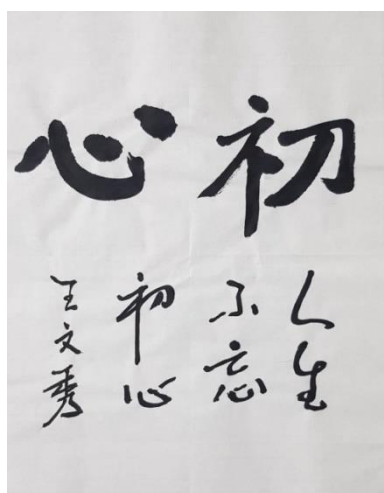 初心
人生
不忘
初心
王文秀